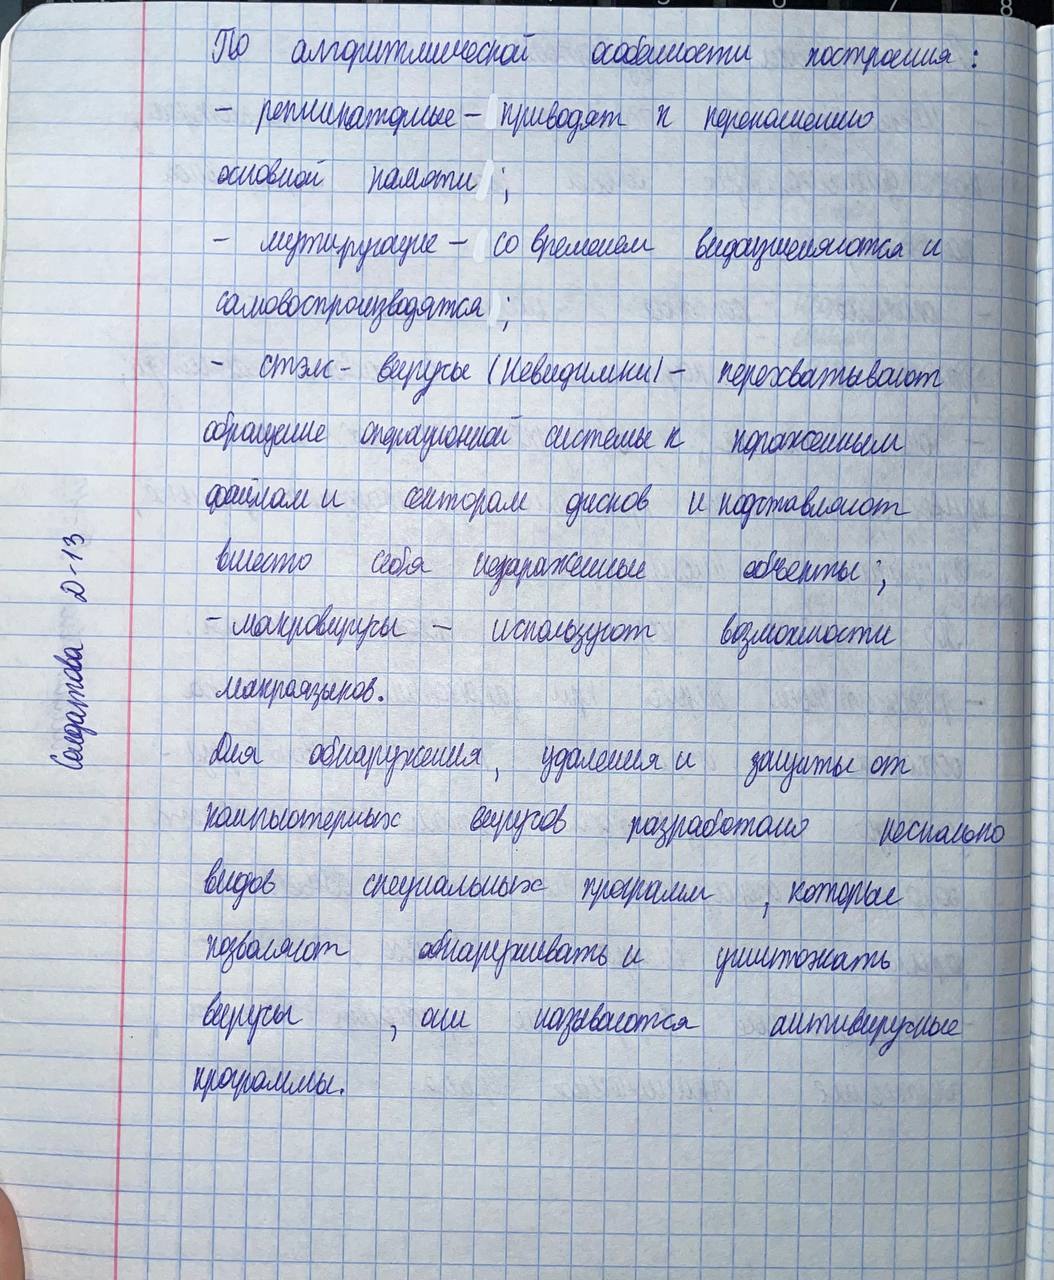 По алгоритмической особенности построения:
- репликаторные - приводят к переполнению
основной памяти;
- мутирующие - со временем видоизменяются и
самовоспроизводятся;
- стэлс-вирусы (Невидимки) - перехватывают
обращение операционной системы к пораженным
файлам и секторам дисков и подставляют
вместо себя незараженные объекты;
- макровирусы - используют возможности
макроязыков.
Для обнаружения, удаления и защиты от
компьютерных вирусов разработано несколько
видов специальных программ, которые
позволяют обнаруживать и уничтожать
вирусы, они называются антивирусные
программы.
Солдатова Д-13